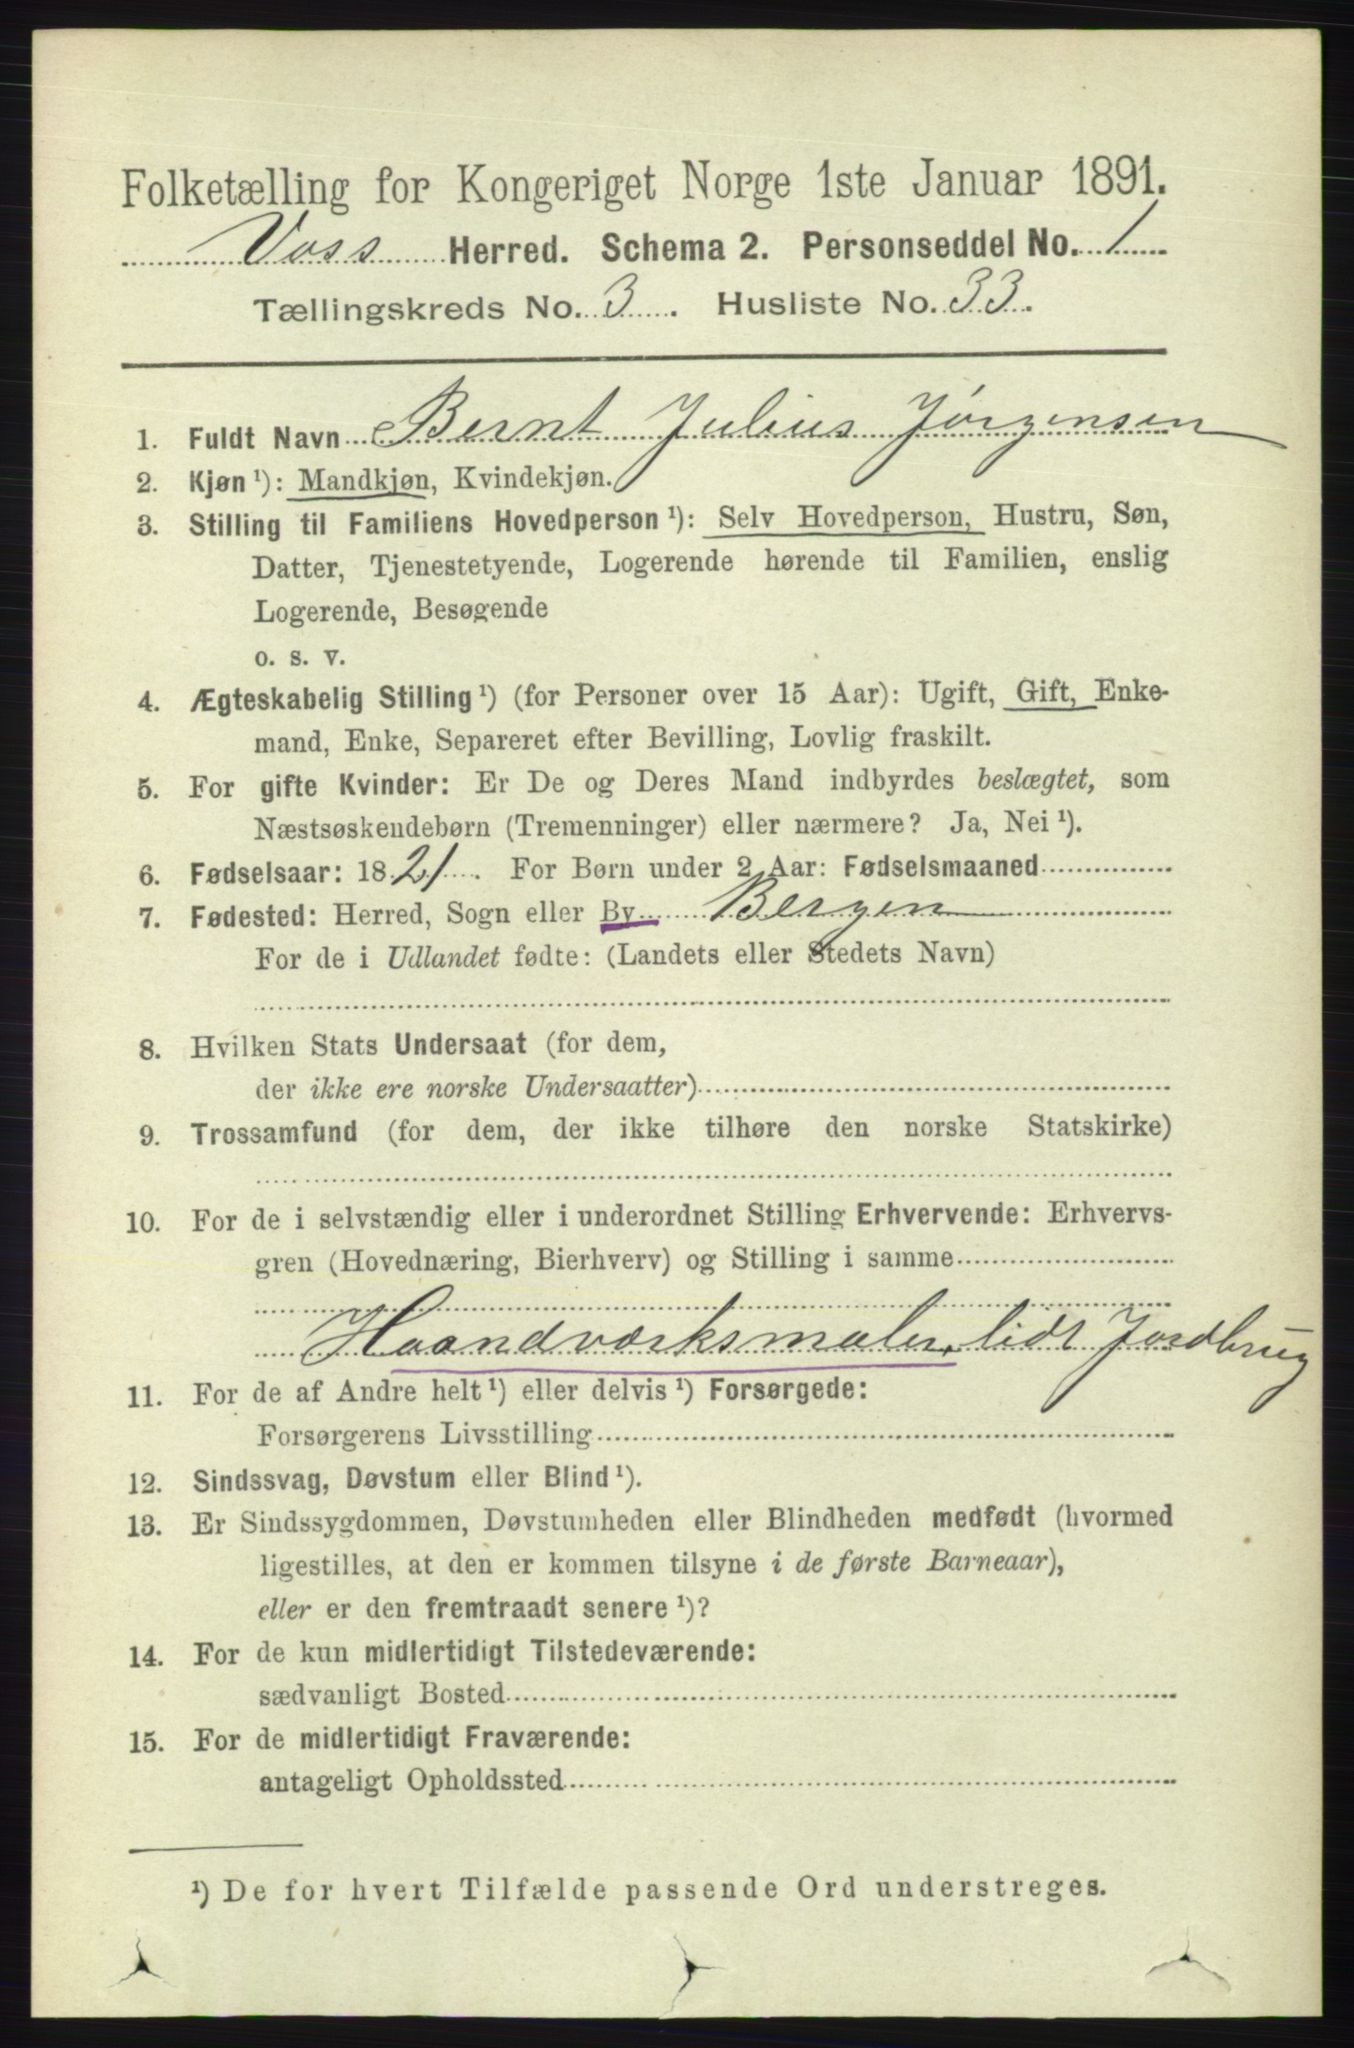 Folketælling for Kongeriget Norge 1ste Januar 1891.
Voss Herred. Schema 2. Personseddel No. 1
Tællingskreds No. 3. Husliste No. 33.
1. Fuldt Navn Bernt Julius Jørgensen
2. Kjøn ¹): Mandkjøn, Kvindekjøn.
3. Stilling til Familiens Hovedperson ¹): Selv Hovedperson, Hustru, Søn,
Datter, Tjenestetyende, Logerende hørende til Familien, enslig
Logerende, Besøgende
o. s. v.
4. Ægteskabelig Stilling ¹) (for Personer over 15 Aar): Ugift, Gift, Enke-
mand, Enke, Separeret efter Bevilling, Lovlig fraskilt.
5. For gifte Kvinder: Er De og Deres Mand indbyrdes beslægtet, som
Næstsøskendebørn (Tremenninger) eller nærmere? Ja, Nei ¹).
6. Fødselsaar: 1821. For Børn under 2 Aar: Fødselsmaaned
7. Fødested: Herred, Sogn eller By Bergen
For de i Udlandet fødte: (Landets eller Stedets Navn)
8. Hvilken Stats Undersaat (for dem,
der ikke ere norske Undersaatter)
9. Trossamfund (for dem, der ikke tilhøre den norske Statskirke)
10. For de i selvstændig eller i underordnet Stilling Erhvervende: Erhvervs-
gren (Hovednæring, Bierhverv) og Stilling i samme
Haandværksmaler, lidt Jordbrug
11. For de af Andre helt ¹) eller delvis ¹) Forsørgede:
Forsørgerens Livsstilling
12. Sindssvag, Døvstum eller Blind ¹).
13. Er Sindssygdommen, Døvstumheden eller Blindheden medfødt (hvormed
ligestilles, at den er kommen tilsyne i de første Barneaar),
eller er den fremtraadt senere ¹)?
14. For de kun midlertidigt Tilstedeværende:
sædvanligt Bosted
15. For de midlertidigt Fraværende:
antageligt Opholdssted
¹) De for hvert Tilfælde passende Ord understreges.